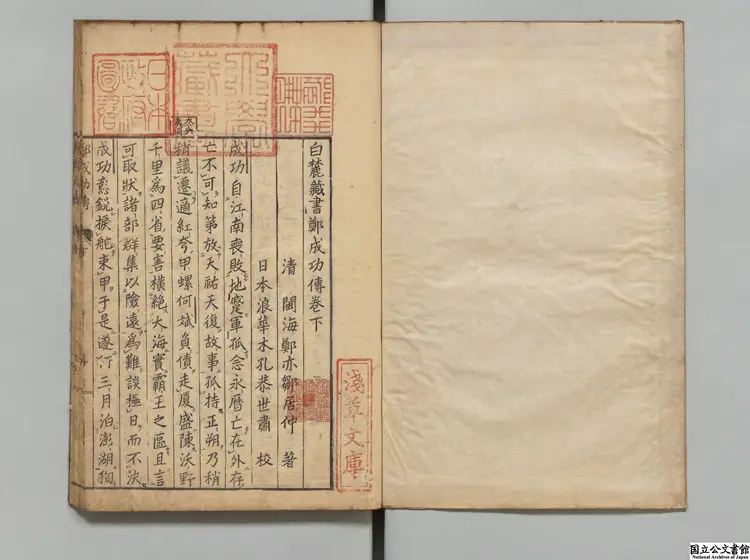 白麓藏書鄭成功傳卷下
清 閩海鄭亦鄒居仲 著
日本浪華木孔恭世肅 校
成功自江南喪敗地蹙軍孤念永曆亡在外存
亡不可知第放天祐天復故事孤持正朔乃稍
稍議遷適紅夸甲螺何斌負債走厦盛陳沃野
千里為四省要害橫絶大海實霸王之區且言
可取狀諸部群集以險遠為難談極日而不決
成功意銳捩舵東甲子是遂行三月泊澎湖狥
鄭成功傳
淺草文庫
日本政府圖書
國立公文書館
National Archives of Japan